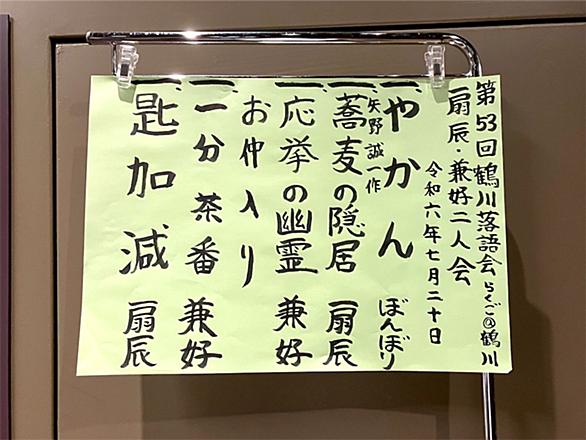 第53回鶴川落語会 らくご@鶴川
扇辰・兼好二人会
令和六年七月二十日
一、やかん ぼんぼり
矢野誠一作
一、蕎麦の隠居 扇辰
一、応挙の幽霊 兼好
お仲入り
一、一分茶番 兼好
一、匙加減 扇辰